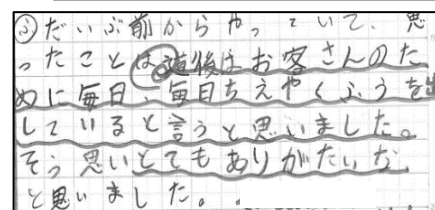 ㋐だいぶ前からやっていて、思
ったことは道後はお客さんのた
めに毎日、毎日ちえやくふうを出
していると言うと思いました。
そう思いとてもありがたいな
と思いました。